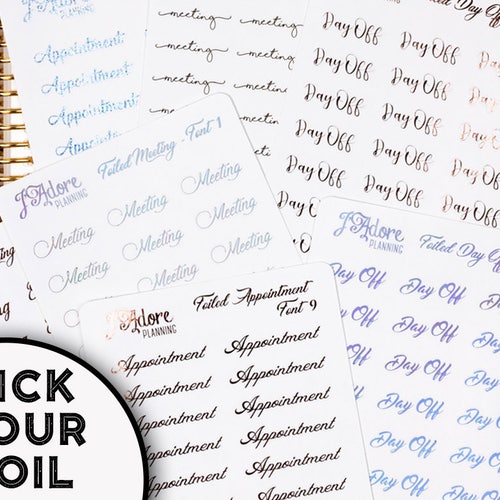 Appointment
Appointment
Appointment
Appointment
Appointment
meeting
meeting
meeting
meeting
meeting
meeting
J'Adore
PLANNING
Foiled Day Off
Day Off
Day Off
Day Off
Day Off
Day Off
Day Off
Day Off
Day Off
Day Off
Day Off
Day Off
Day Off
J'Adore
PLANNING
Foiled Meeting - Font 1
Meeting
Meeting
Meeting
Meeting
Meeting
Meeting
Meeting
Meeting
J'Adore
PLANNING
Foiled Day Off
Day Off
Day Off
Day Off
Day Off
Day Off
Day Off
Day Off
Day Off
Day Off
Day Off
Day Off
Day Off
J'Adore
PLANNING
Foiled Appointment
Font 9
Appointment Appointment
Appointment Appointment
Appointment Appointment
Appointment Appointment
Appointment Appointment
ICK
OUR
OIL